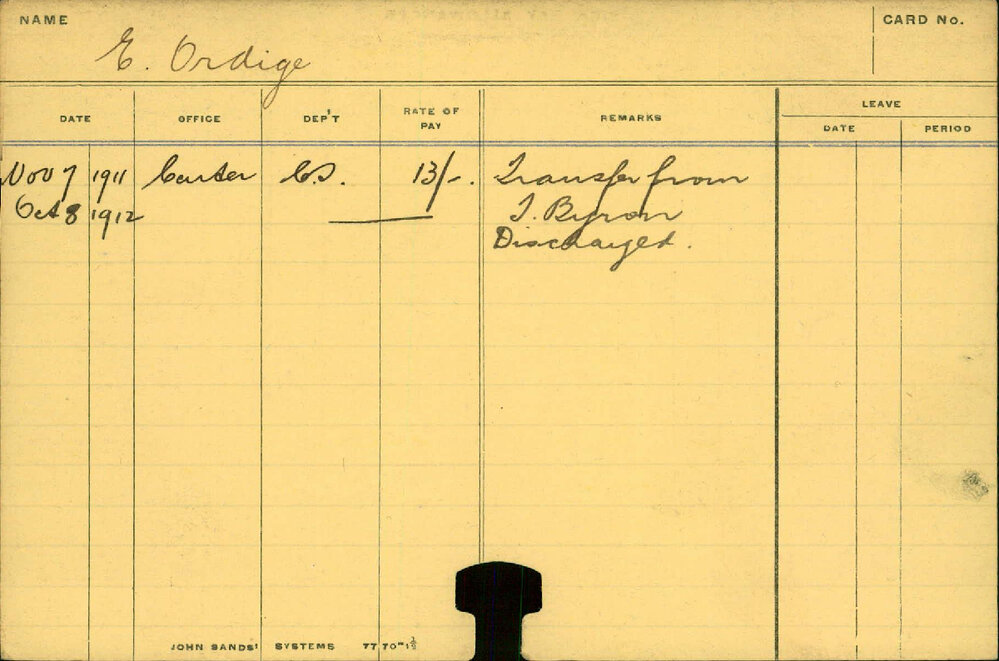 NAME
E. Ordige
CARD No.
DATE
OFFICE
DEP'T
RATE OF PAY
REMARKS
LEAVE
DATE
PERIOD
Nov 7 1911 Carter C.S. 13/-. Transfer from
Oct 8 1912 T. Byron
Discharged.
JOHN SANDS' SYSTEMS